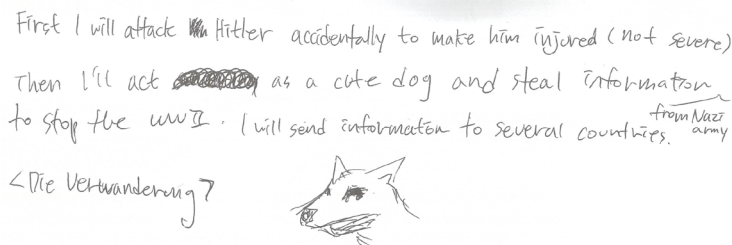 First I will attack Hitler accidentally to make him injured (not severe)
Then I'll act as a cute dog and steal information
from Nazi army
to stop the WWII. I will send information to several countries.
<Die Verwanderung>